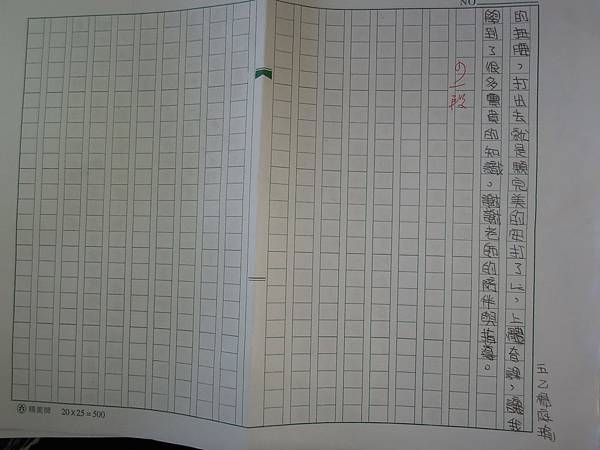 NO
的無曖，打出去就是顆完美的安打了」，上體育課，讓我
學到了很多寶貴的知識，謝謝老師的陪伴與指導。
段
五乙
精美牌 20×25=500